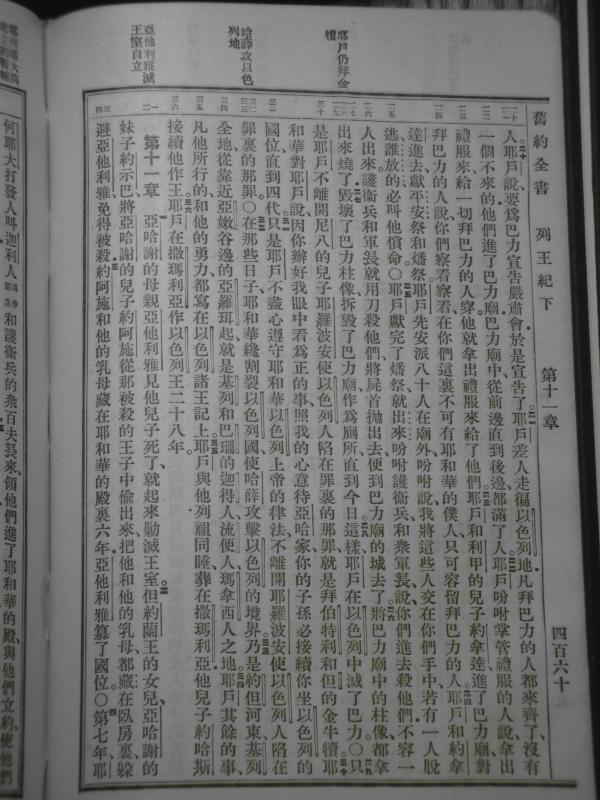 舊約全書
列王紀下
第十一章
四百六十
耶戶仍拜金
犢
哈薛攻以色
列地
亞他利雅滅
王室自立
人耶戶說要爲巴力宣告嚴肅會於是宣告了耶戶差人走徧以色列地凡拜巴力的人都來齊了沒有
一個不來的他們進了巴力廟巴力廟中從前邊直到後邊都滿了人耶戶吩咐掌管禮服的人說拿出
禮服來給一切拜巴力的人穿他就拿出禮服來給了他們耶戶和利甲的兒子約拿達進了巴力廟對
拜巴力的人說你們察看察看在你們這裏不可有耶和華的僕人只可容留拜巴力的人耶戶和約拿
達進去獻平安祭和燔祭耶戶先安派八十人在廟外吩咐說我將這些人交在你們手中若有一人脫
逃誰放的必叫他償命〇耶戶獻完了燔祭就出來吩咐護衞兵和衆軍長說你們進去殺他們不容一
人出來護衞兵和軍長就用刀殺他們將屍首拋出去便到巴力廟的城去了將巴力廟中的柱像都拿
出來燒了毀壞了巴力柱像拆毀了巴力廟作爲廁所直到今日這樣耶戶在以色列中滅了巴力〇只
是耶戶不離開尼八的兒子耶羅波安使以色列人陷在罪裏的那罪就是拜伯特利和但的金牛犢耶
和華對耶戶說因你辦好我眼中看爲正的事照我的心意待亞哈家你的子孫必接續你坐以色列的
國位直到四代只是耶戶不盡心遵守耶和華以色列上帝的律法不離開耶羅波安使以色列人陷在
罪裏的那罪〇在那些日子耶和華纔割裂以色列國使哈薛攻擊以色列的境界乃是約但河東基列
全地從靠近亞嫩谷邊的亞羅珥起就是基列和巴珊的迦得人流便人瑪拿西人之地耶戶其餘的事
凡他所行的和他的勇力都寫在以色列諸王記上耶戶與他列祖同睡葬在撒瑪利亞他兒子約哈斯
接續他作王耶戶在撒瑪利亞作以色列王二十八年
第十一章 亞哈謝的母親亞他利雅見他兒子死了就起來勦滅王室但約蘭王的女兒亞哈謝的
妹子約示巴將亞哈謝的兒子約阿施從那被殺的王子中偷出來把他和他的乳母都藏在臥房裏躲
避亞他利雅免得被殺約阿施和他的乳母藏在耶和華的殿裏六年亞他利雅篡了國位〇第七年耶
何耶大打發人叫迦利人和護衞兵的衆百夫長來領他們進了耶和華的殿與他們立約使他們